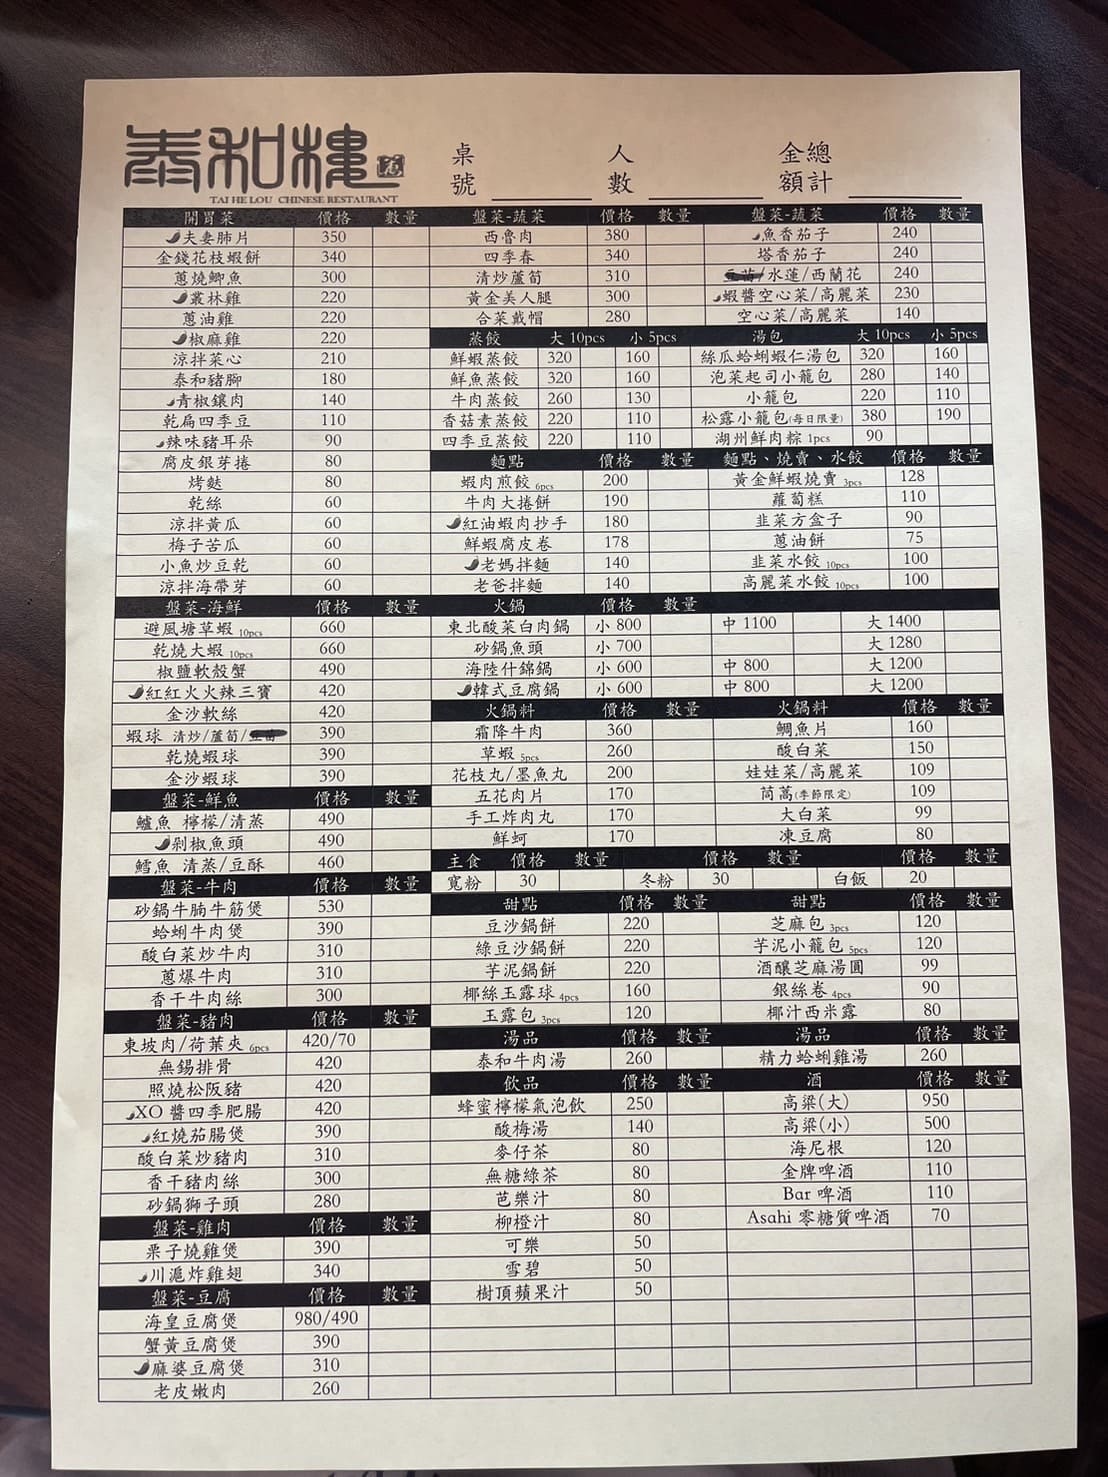 泰和樓
TAI HE LOU CHINESE RESTAURANT
桌號 人數 金額總計
開胃菜 價格 數量
夫妻肺片 350
金錢花枝蝦餅 340
蔥燒鯽魚 300
叢林雞 220
蔥油雞 220
椒麻雞 220
涼拌菜心 210
泰和豬腳 180
青椒鑲肉 140
乾扁四季豆 110
辣味豬耳朵 90
腐皮銀芽捲 80
烤麩 80
乾絲 60
涼拌黃瓜 60
梅子苦瓜 60
小魚炒豆乾 60
涼拌海帶芽 60
盤菜-海鮮 價格 數量
避風塘草蝦 10pcs 660
乾燒大蝦 10pcs 660
椒鹽軟殼蟹 490
紅紅火火辣三寶 420
金沙軟絲 420
蝦球 清炒/蘆筍/ 390
乾燒蝦球 390
金沙蝦球 390
盤菜-鮮魚 價格 數量
鱸魚 檸檬/清蒸 490
剁椒魚頭 490
鱈魚 清蒸/豆酥 460
盤菜-牛肉 價格 數量
砂鍋牛腩牛筋煲 530
蛤蜊牛肉煲 390
酸白菜炒牛肉 310
蔥爆牛肉 310
香干牛肉絲 300
盤菜-豬肉 價格 數量
東坡肉/荷葉夾 6pcs 420/70
無錫排骨 420
照燒松阪豬 420
XO 醬四季肥腸 420
紅燒茄腸煲 390
酸白菜炒豬肉 310
香干豬肉絲 300
砂鍋獅子頭 280
盤菜-雞肉 價格 數量
栗子燒雞煲 390
川滬炸雞翅 340
盤菜-豆腐 價格 數量
海皇豆腐煲 980/490
蟹黃豆腐煲 390
麻婆豆腐煲 310
老皮嫩肉 260
盤菜-蔬菜 價格 數量
西魯肉 380
四季春 340
清炒蘆筍 310
黃金美人腿 300
合菜戴帽 280
盤菜-蔬菜 價格 數量
魚香茄子 240
塔香茄子 240
/水蓮/西蘭花 240
蝦醬空心菜/高麗菜 230
空心菜/高麗菜 140
蒸餃 大 10pcs 小 5pcs
鮮蝦蒸餃 320 160
鮮魚蒸餃 320 160
牛肉蒸餃 260 130
香菇素蒸餃 220 110
四季豆蒸餃 220 110
湯包 大 10pcs 小 5pcs
絲瓜蛤蜊蝦仁湯包 320 160
泡菜起司小籠包 280 140
小籠包 220 110
松露小籠包(每日限量) 380 190
湖州鮮肉粽 1pcs 90
麵點 價格 數量
蝦肉煎餃 6pcs 200
牛肉大捲餅 190
紅油蝦肉抄手 180
鮮蝦腐皮卷 178
老媽拌麵 140
老爸拌麵 140
麵點、燒賣、水餃 價格 數量
黃金鮮蝦燒賣 3pcs 128
蘿蔔糕 110
韭菜方盒子 90
蔥油餅 75
韭菜水餃 10pcs 100
高麗菜水餃 10pcs 100
火鍋 價格 數量
東北酸菜白肉鍋 小 800 中 1100 大 1400
砂鍋魚頭 小 700 大 1280
海陸什錦鍋 小 600 中 800 大 1200
韓式豆腐鍋 小 600 中 800 大 1200
火鍋料 價格 數量
霜降牛肉 360
草蝦 5pcs 260
花枝丸/墨魚丸 200
五花肉片 170
手工炸肉丸 170
鮮蚵 170
火鍋料 價格 數量
鯛魚片 160
酸白菜 150
娃娃菜/高麗菜 109
茼萵(季節限定) 109
大白菜 99
凍豆腐 80
主食 價格 數量 價格 數量 價格 數量
寬粉 30 冬粉 30 白飯 20
甜點 價格 數量
豆沙鍋餅 220
綠豆沙鍋餅 220
芋泥鍋餅 220
椰絲玉露球 4pcs 160
玉露包 3pcs 120
甜點 價格 數量
芝麻包 3pcs 120
芋泥小籠包 5pcs 120
酒釀芝麻湯圓 99
銀絲卷 4pcs 90
椰汁西米露 80
湯品 價格 數量 湯品 價格 數量
泰和牛肉湯 260 精力蛤蜊雞湯 260
飲品 價格 數量
蜂蜜檸檬氣泡飲 250
酸梅湯 140
麥仔茶 80
無糖綠茶 80
芭樂汁 80
柳橙汁 80
可樂 50
雪碧 50
樹頂蘋果汁 50
酒 價格 數量
高粱(大) 950
高粱(小) 500
海尼根 120
金牌啤酒 110
Bar 啤酒 110
Asahi 零糖質啤酒 70